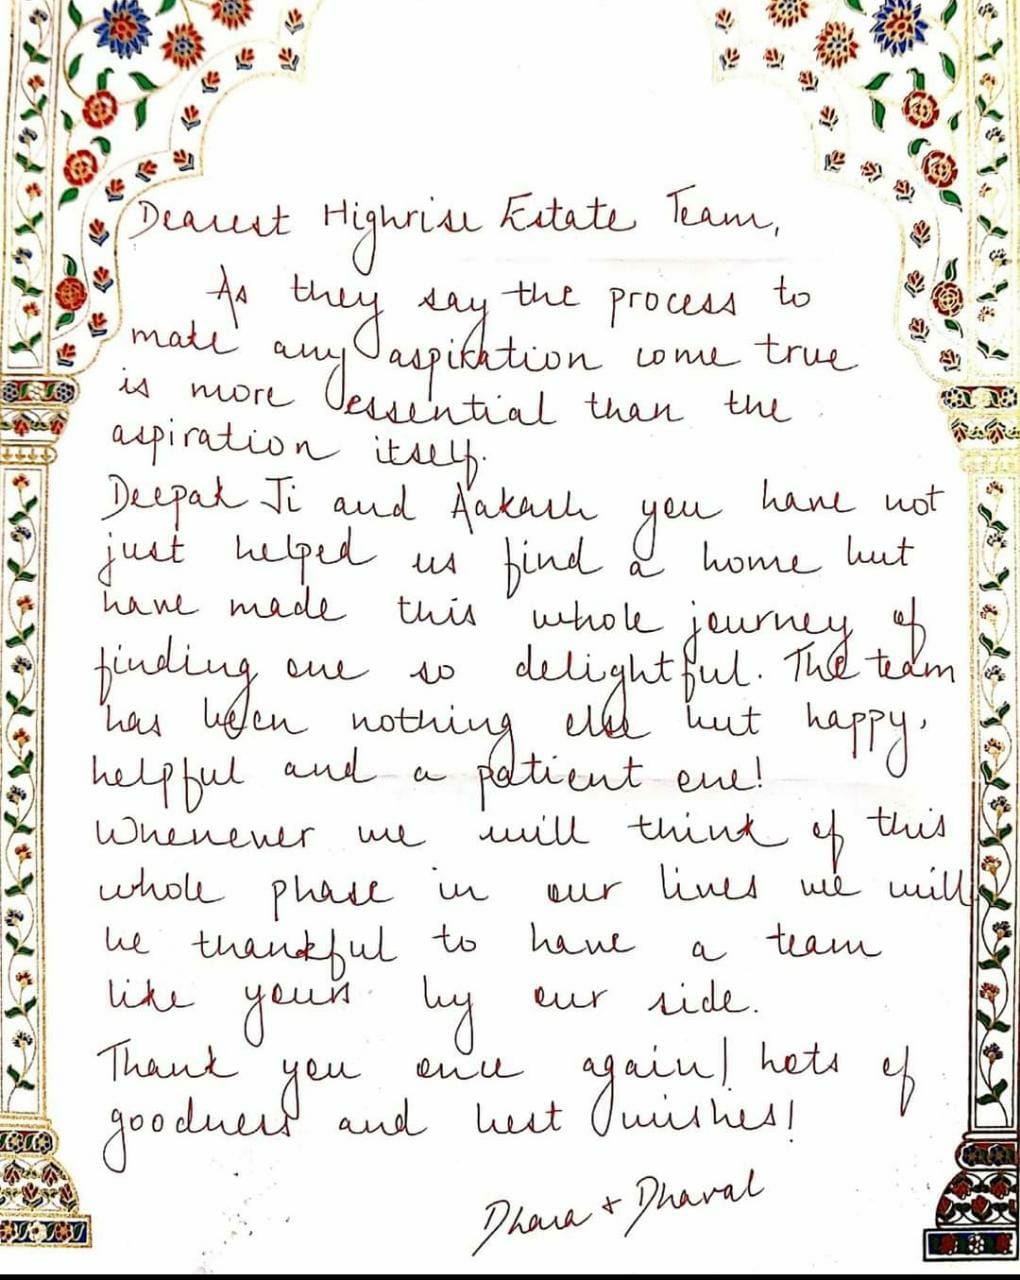 Dearest Highrise Estate Team,
As they say the process to
make any aspiration come true
is more essential than the
aspiration itself.
Deepak Ji and Aakash you have not
just helped us find a home but
have made this whole journey of
finding one so delightful. The team
has been nothing else but happy,
helpful and a patient one!
Whenever we will think of this
whole phase in our lives we will
be thankful to have a team
like yours by our side.
Thank you once again! lots of
goodness and best wishes!
Dhara + Dhaval